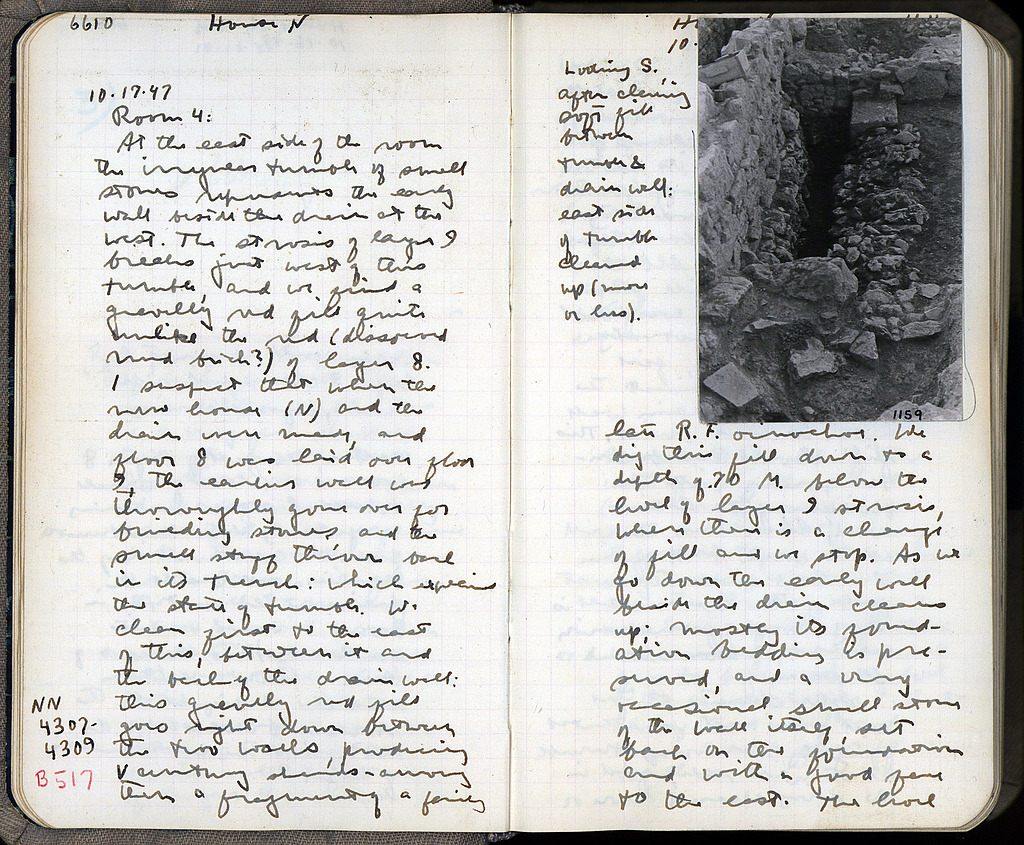 6610 House N
10.17.47
Room 4:
At the east side of the room
the irregular tumble of small
stones represents the early
wall beside the drain at the
west. The strosis of layer 9
breaks just west of this
tumble, and we find a
gravelly red fill quite
unlike the red (dissolved
mud brick?) of layer 8.
I suspect that when the
new house (N) and the
drain were made, and
floor 8 was laid over floor
9, the earlier wall was
thoroughly gone over for
building stones and the
small stuff thrown back
in its trench: which explains
the state of tumble. We
clean first to the east
of this, between it and
the back of the drain wall:
this gravelly red fill
goes right down between
the two walls, producing
V century sherds - among
them a fragment of a fairly
NN
4307-
4309
B 517
10.
Looking S.,
after cleaning
soft fill
between
tumble &
drain wall:
east side
of tumble
cleaned
up (more
or less).
1159
late R.F. oinochoe. We
dig this fill down to a
depth of .70 M. below the
level of layer 9 strosis,
where there is a change
of fill and we stop. As we
go down the early wall
beside the drain cleans
up; mostly its found-
ation bedding is pre-
served, and a very
occasional small stone
of the wall itself, set
back on the foundation
and with a good face
to the east. The level